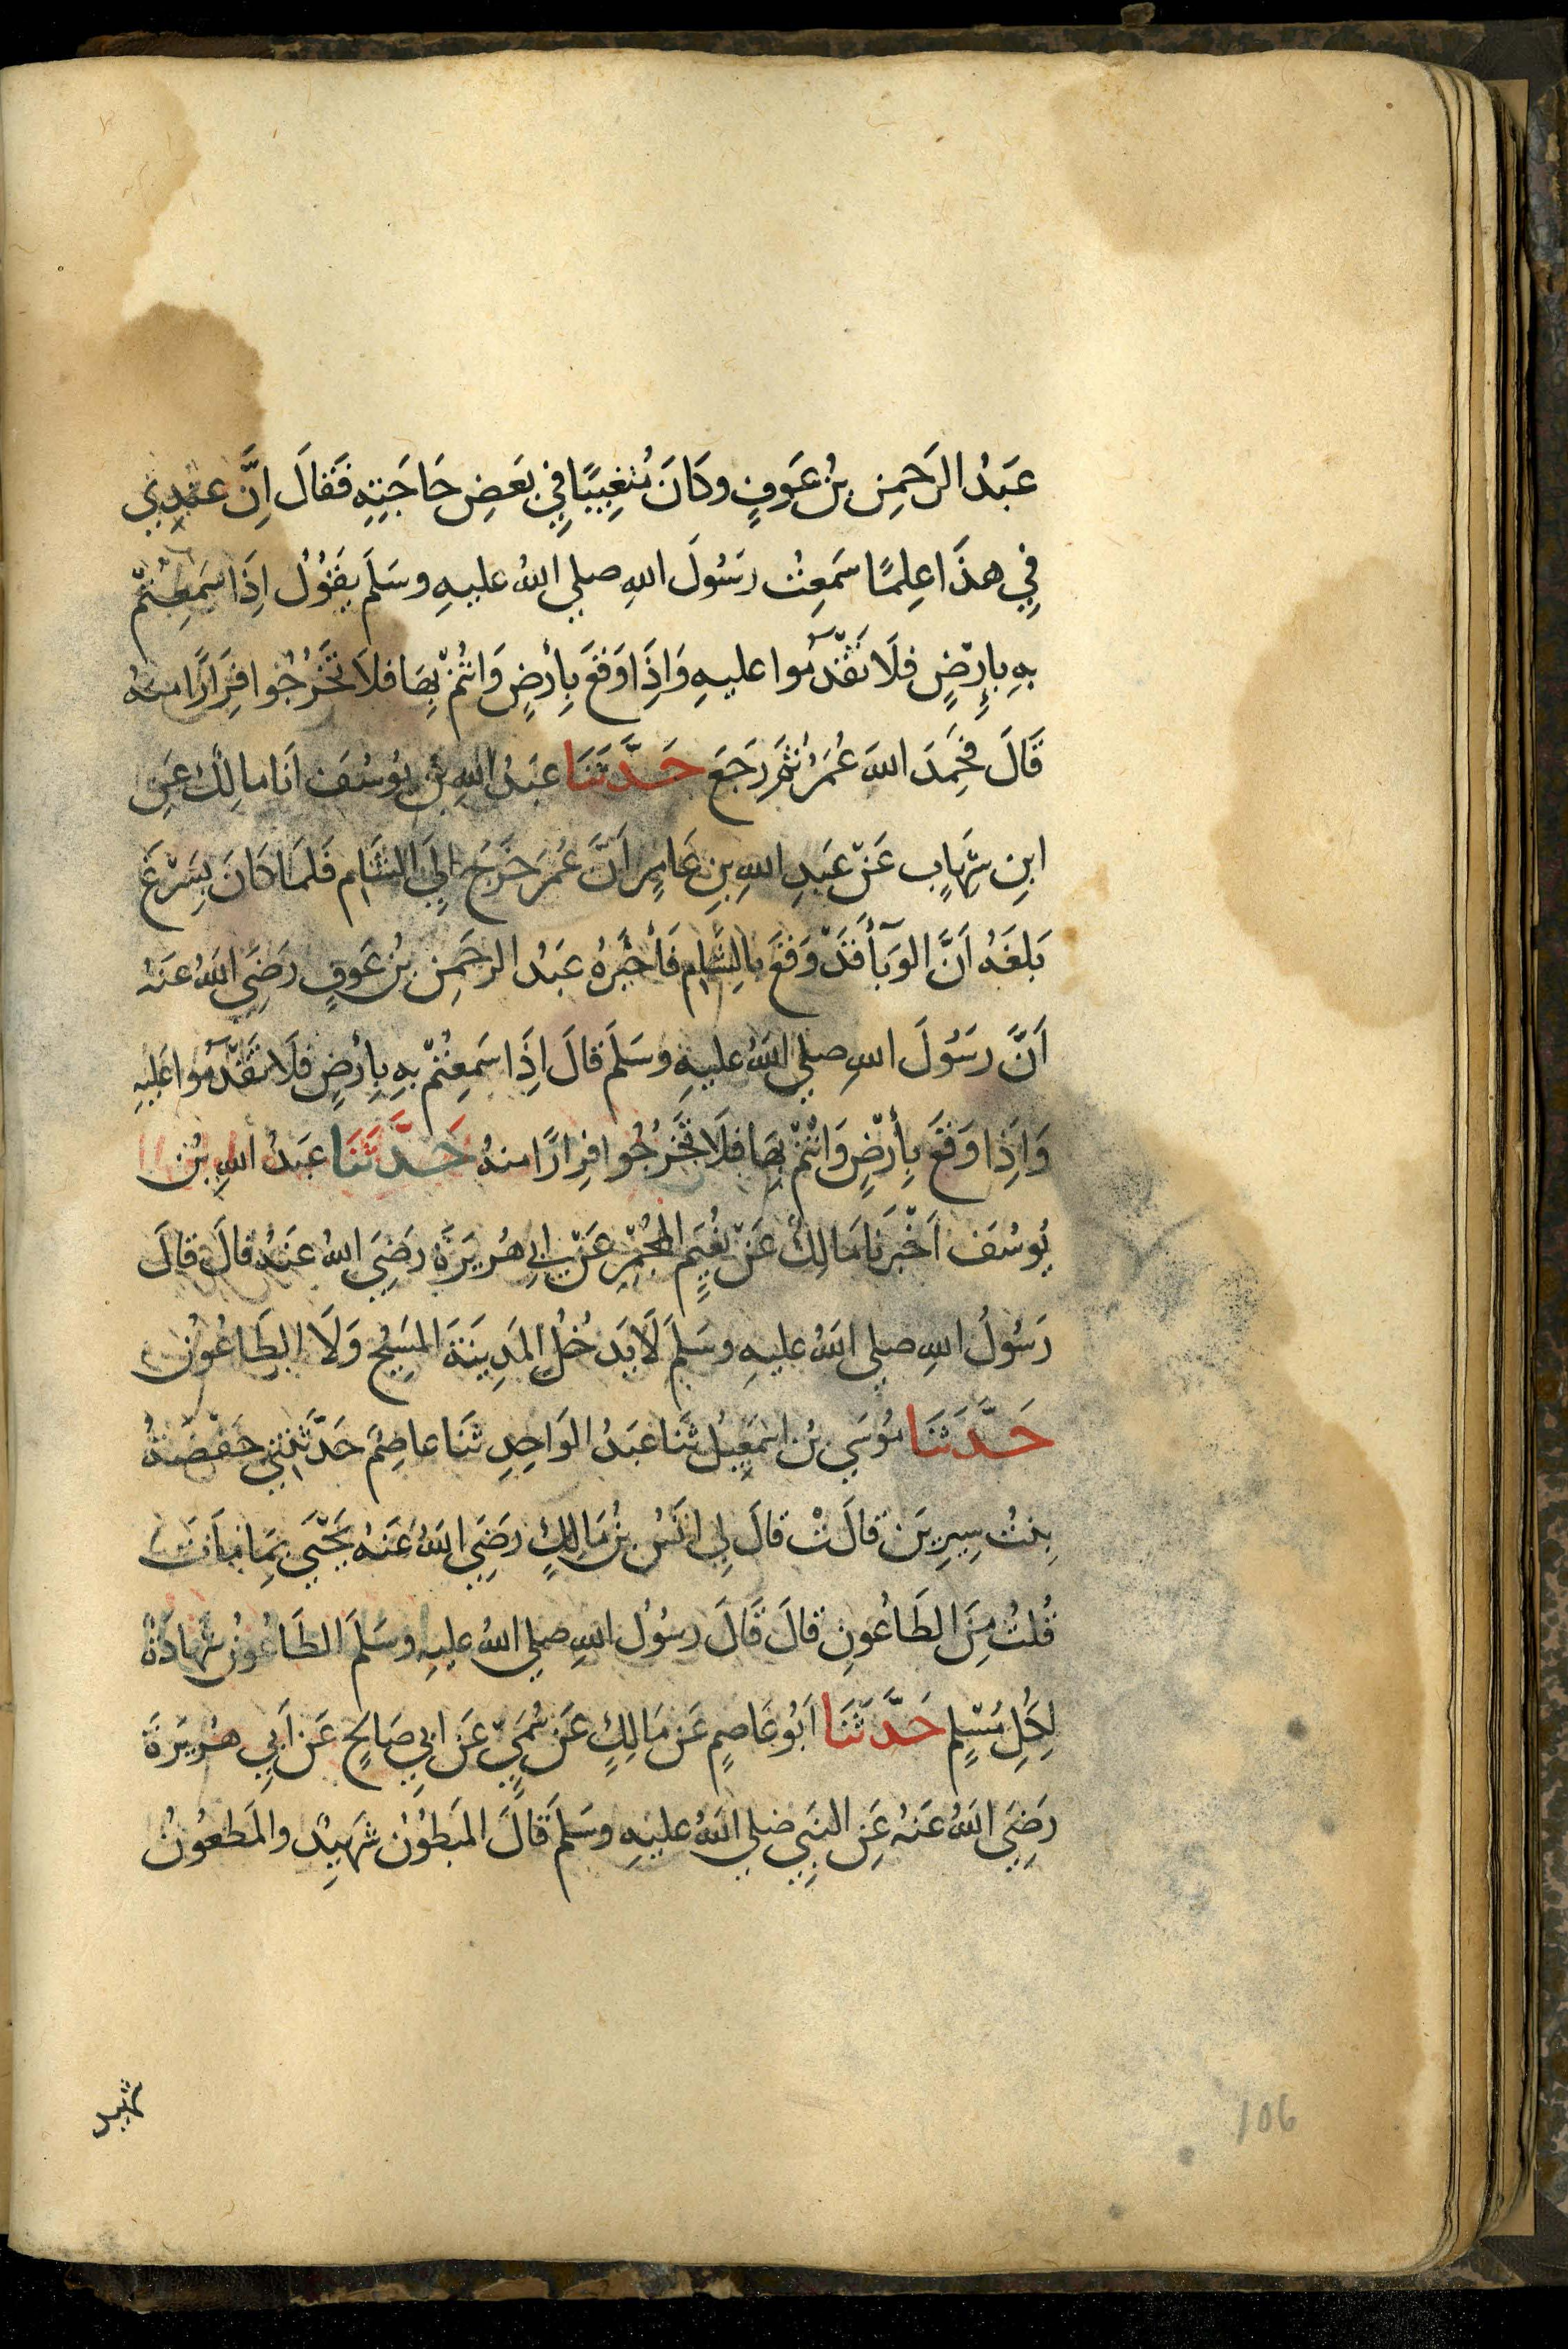 عَبْدُ الرَحمِن بنُ عَوفٍ وكَانَ مُتغِيبًا فِي بَعضِ حَاجَتِهِ فَقَالَ اِنَّ عندِي
فِي هذَا عِلمًا سَمَعِتُ رسَُولَ اللهِ صلي اللهُ عليهِ وسَلَم يقَوُلُ اِذَا سَمِعتُمْ
بهِ بِارْضٍ فلَا تقْدَموُا عليهِ وَاِذَا وَقعَ بِأرْضٍ وَانتُمْ بِهَا فلَا تَخرُجُوا فِرَارًا منهُ
قَالَ فحَمِدَ اللهَ عُمَرُ ثمَ رَجَعَ حَدَّثَنَا عبَدُ اللهِ بنُ يوُسُفَ انَا مالِكُ عَنِ
ابنِ شِهَابٍ عَنْ عَبدِ اللهِ بنِ عَامِرٍ اَنَّ عُمَرَ خَرَجَ الِيَ الشَامِ فَلمَا كَانَ بِسَرْغَ
بَلغَهُ اَنَّ الوَبَأ قَدْ وَقعَ بالِشَامِ فَأخبَرَهُ عَبدُ الرحَمِن بنُ عَوفٍ رضَِيَ اللهُ عنَهُ
اَنَّ رسَُولَ اللهِ صلي اللهُ عليهِ وسَلَم قَالَ اِذَا سَمِعتُمْ بهِ بِأرْضٍ فلَا تقْدَموُا عَليَهِ
وَاِذَا وَقعَ بِأرْضٍ وَانتُمْ بِهَا فلَا تَخرُجُوا فِرارًا منهُ حَدَّثَنَا عَبدُ اللهِ بنُ
يوُسُفَ اَخْبَرنَا مَالِكُ عَنْ نُعَيمٍ المجُمِرِ عَنْ ابِي هُرَيرَةَ رضَِيَ اللهُ عنَهُ قالَ قالَ
رَسُولُ اللهِ صلي اللهُ عليهِ وسَلَم لَا يدَخُلُ المَدِينَةَ المسَيِحُ وَلَا الطَاعُونُ
حَدَّثَنَا موُسَي بنُ اسمَعِيلَ ثنَا عبَدُ الوَاحِدِ ثنَا عاصِمٌ حَدَّثتنِي حَفْصَةُ
بِنتُ سِيرِينَ قالَتْ قالَ لِي انَسُ بنُ مَالِكٍ رَضِيَ اللهُ عَنهُ يَحْيَي بِمَا مَاتَ
قُلتُ مِنَ الطَاعُونِ قالَ قَالَ رسوُل اللهِ صلي اللهُ عليهِ وسَلَمَ الطَاعُونُ شهَادَةٌ
لِكُلِ مسْلِمٍ حَدَّثَنَا اَبُو عَاصِمٍ عَن مَالِكٍ عَن سُمَيٍّ عَن ابِي صَالحٍ عَن اَبِي هرُيَرَةَ
رَضِيَ اللهُ عنَهُ عَنِ النبَِي صلي اللهُ عليهِ وسَلَم قَالَ المبَطوُنُ شهَيِدٌ والمَطعوُنُ
شهيد
106